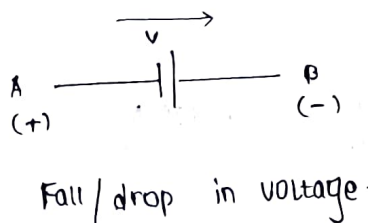 V
A B
(+) (-)
Fall/drop in voltage.